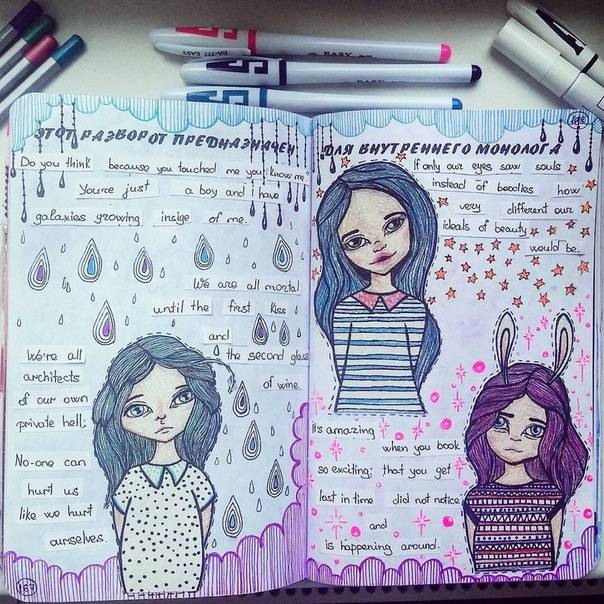 ЭТОТ РАЗВОРОТ ПРЕДНАЗНАЧЕН
ДЛЯ ВНУТРЕННЕГО МОНОЛОГА
Do you think because you touched me you know me
You're just a boy and i have
galaxies growing insige of me.
We are all mortal
until the first kiss
and
the second glass
of wine.
We're all
architects
of our own
private hell;
No-one can
hurt us
like we hurt
ourselves.
If only our eyes saw souls
instead of boodies how
very different our
ideals of beauty
would be.
It's amazing
when you book
so exciting; that you get
lost in time did not notice
and
is happening around.
EASY
EASY